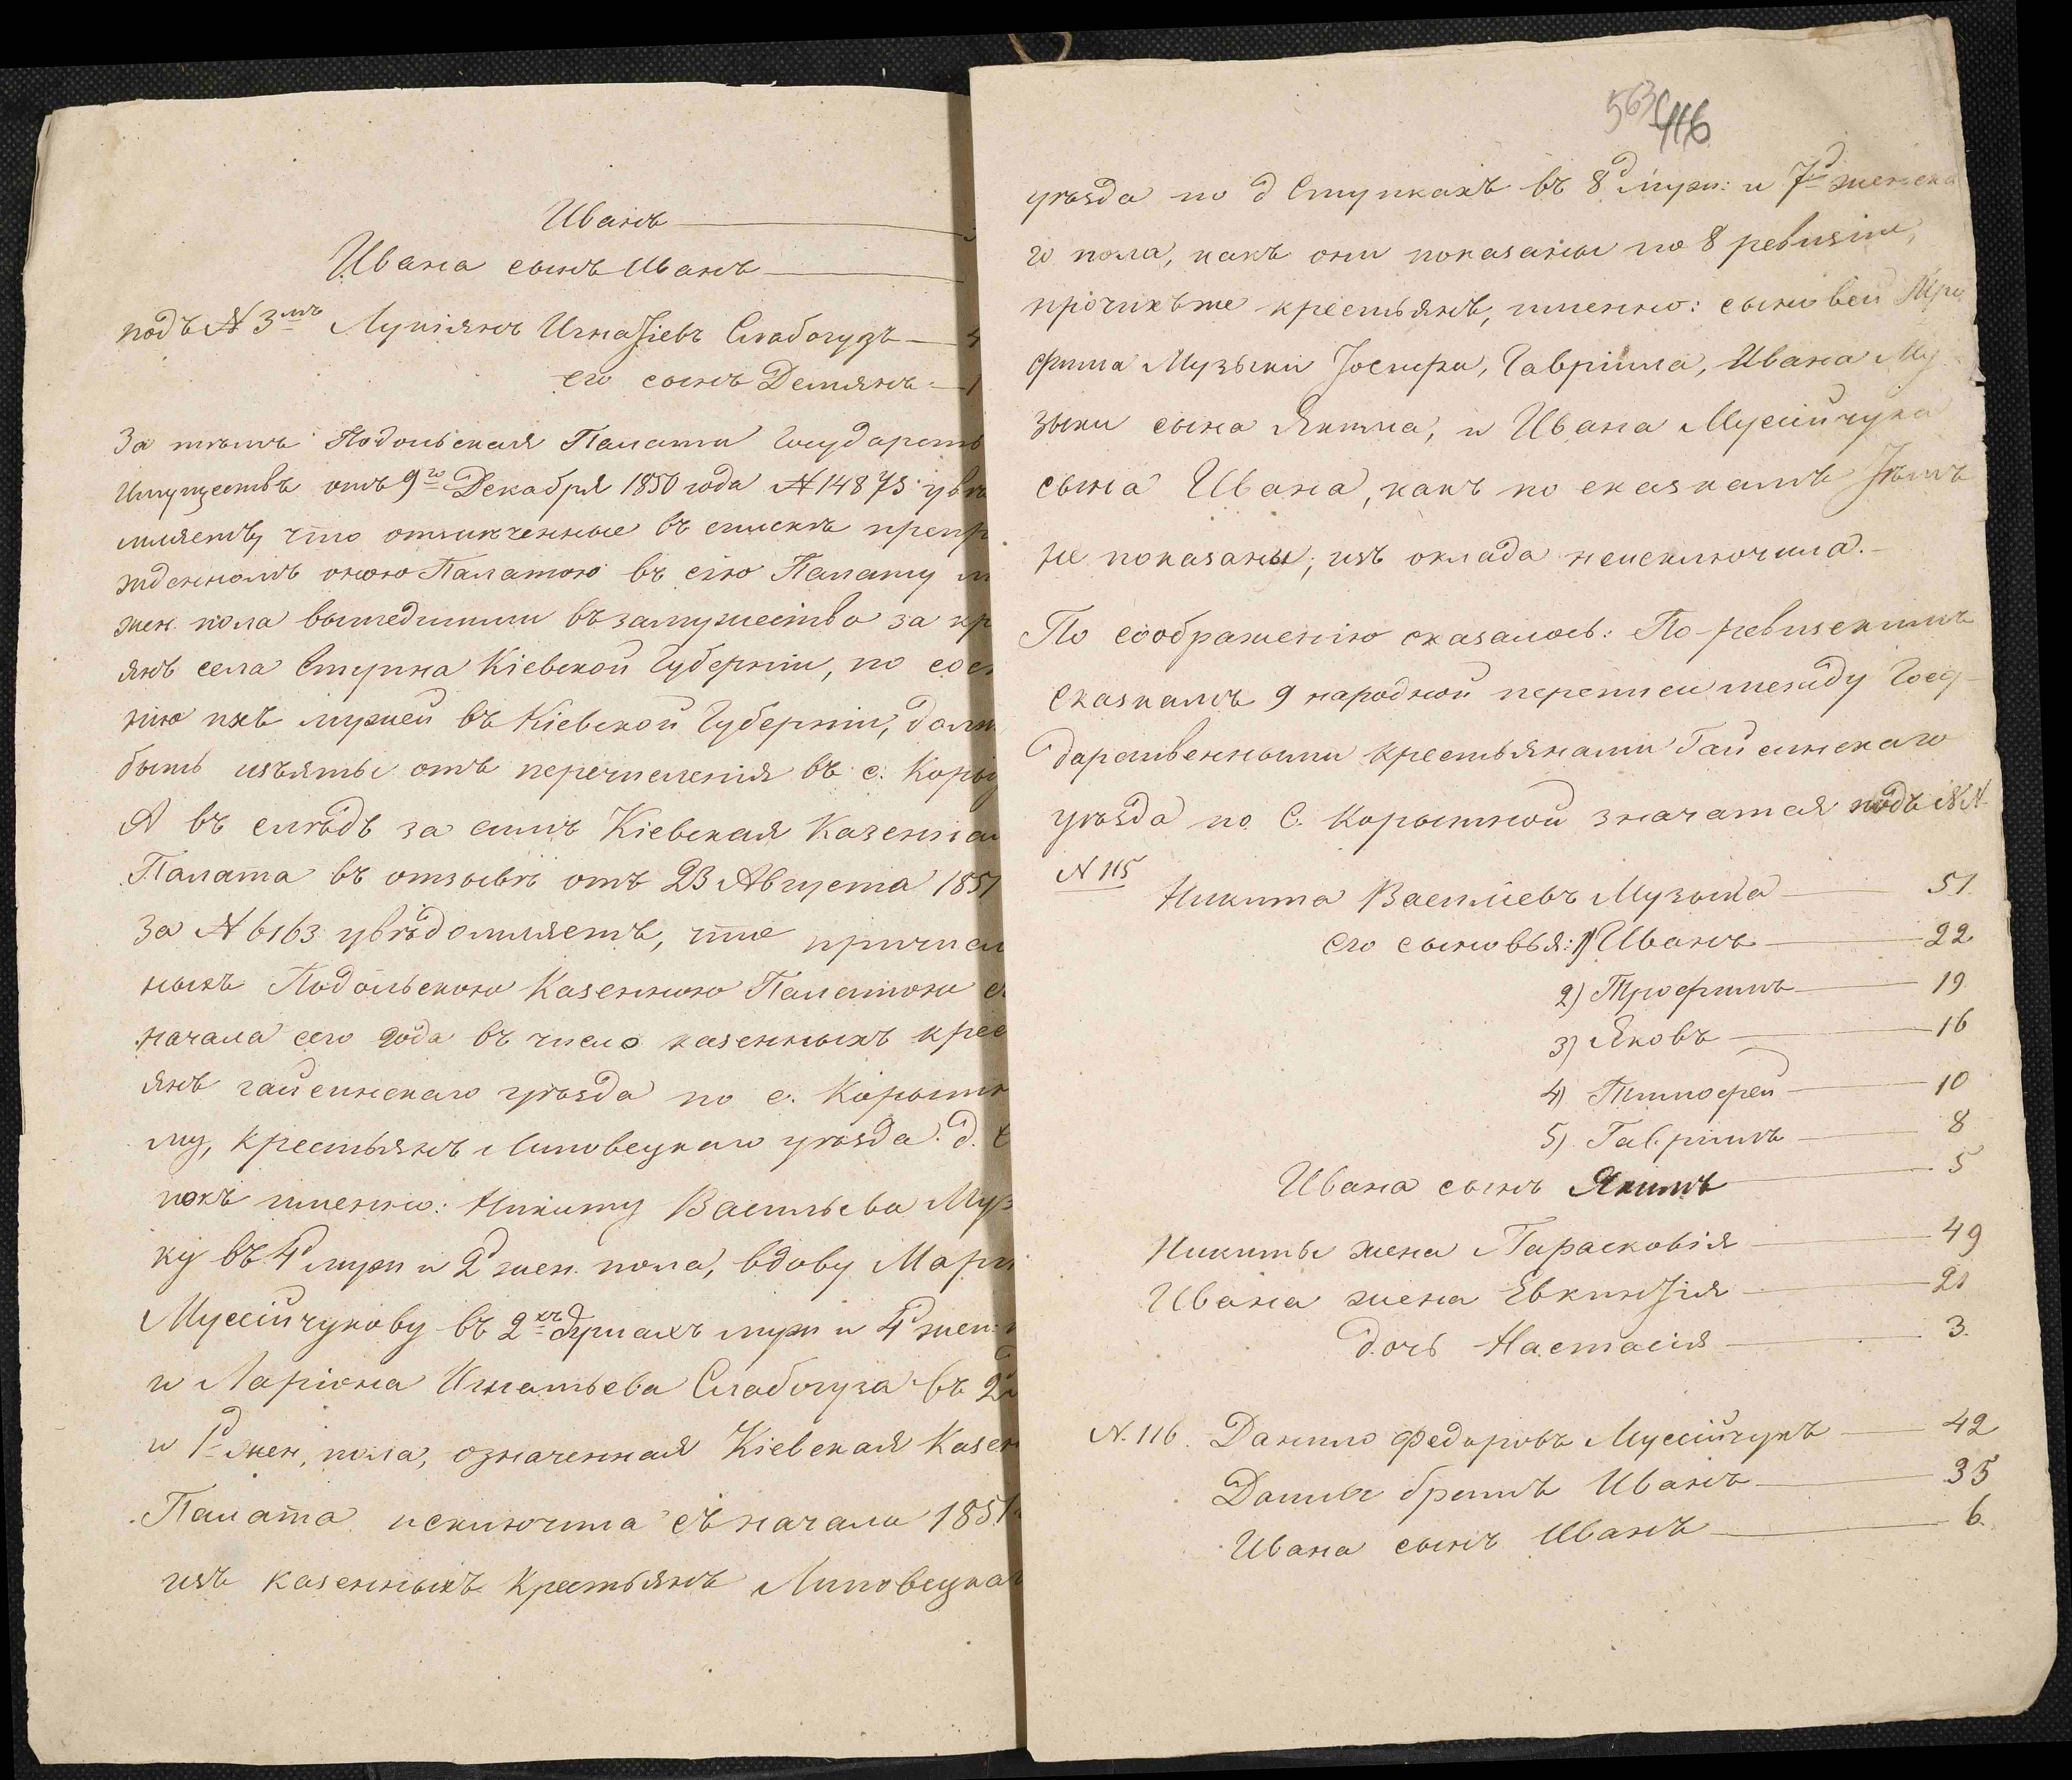 Иванъ
Ивана сынъ Иванъ
подъ № 3мъ Лукіянъ Игнатіевъ Слабогузъ — 4
его сынъ Демянъ — 1
За тѣмъ Подольская Палата Государств
Имуществъ отъ 9го Декабря 1850 года № 14875 увѣ
мляетъ, что отмѣченные въ спискѣ препр
жденномъ оною Палатою въ сію Палату
жен. пола вышедшими въ замужество за кр
янъ села Ступка Кіевской Губерніи, по сос
нію ихъ мужей въ Кіевской Губерніи, долж
быть изъяты отъ перечисленія въ с. Коры
А въ слѣдъ за симъ Кіевская Казенная
Палата въ отзывѣ отъ 23 Августа 1851
за № 6163 увѣдомляетъ, что причисл
ныхъ Подольскою Казенною Палатою съ
начала сего года въ число казенныхъ крес
янъ гайсинскаго уѣзда по с. Корытн
му, крестьянъ Липовецкаго уѣзда д. С
покъ именно: Никиту Васильева Муз
ку въ 4д муж и 2д жен. пола, вдову Мари
Мусійчукову въ 2хъ душахъ муж и 4д жен:
и Ларіона Игнатьева Слабогуза въ 2д
и 1д жен. пола, означенная Кіевская Казен
Палата исключила съ начала 1851
изъ казенныхъ крестьянъ Липовецкаг
563 416
уѣзда по д Ступкахъ въ 8д муж: и 7д женска
го пола, какъ они показаны по 8 ревизіи,
прочихъ же крестьянъ, именно: сыновей Тро
фима Музыки Іосифа, Гавріила, Ивана Му
зыки сына Якима, и Ивана Мусійчука
сына Ивана, какъ по сказкамъ тѣмъ
не показаны, изъ оклада неисключила.
По соображенію оказалось: По ревизскимъ
сказкамъ 9 народной переписи между Госу
дарственными крестьянами Гайсинскаго
уѣзда по с. Корытной значатся подъ №№
N 115
Никита Васильевъ Музыка — 51
его сыновья: 1) Иванъ — 22
2) Трофимъ — 19
3) Яковъ — 16
4) Тимофей — 10
5) Гавріилъ — 8
Ивана сынъ Якимъ — 5
Никиты жена Парасковія — 49
Ивана жена Евкинтія — 21
дочь Настасія — 3.
N. 116. Данило Федоровъ Мусійчукъ — 42
Данила братъ Иванъ — 35
Ивана сынъ Иванъ — 6.